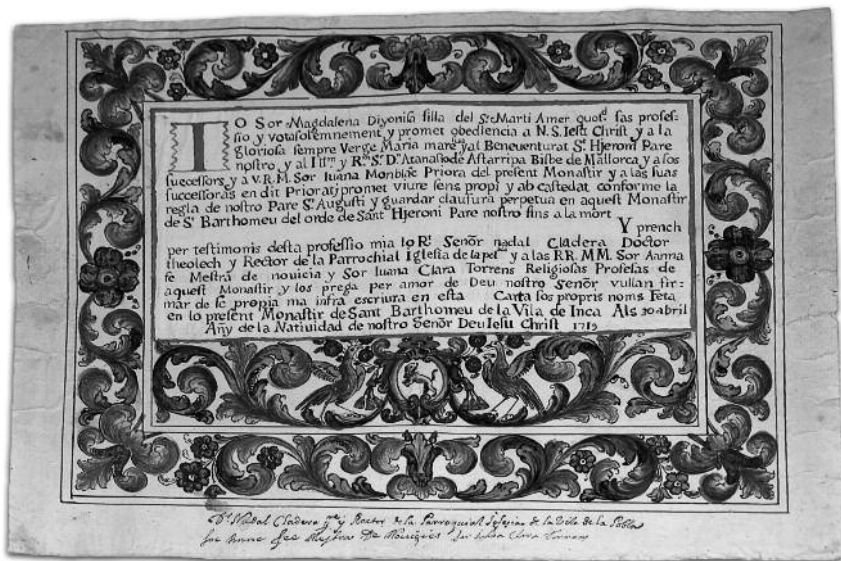 IO Sor Magdalena Diyonisa filla del Sr. Marti Amer quod. fas profes-
sio y vot solemnement y promet obediencia a N. S. Iesu Christ y a la
gloriosa sempre Verge Maria mare y al Beneventurat St. Hjeroni Pare
nostro, y al Illm. y Rm. Sr. D. Atanasio de Astarripa Bisbe de Mallorca y a sos
successors, y a V. R. M. Sor Iuana Priora del present Monastir y a las suas
successoras en dit Priorat; promet viure sens propi y ab castedat conforme la
regla de nostro Pare St. Augusti y guardar clausura perpetua en aquest Monastir
de St. Barthomeu del orde de Sant Hjeroni Pare nostro fins a la mort
Y prench
per testimonis desta professio mia lo Rt. Señor nadal Cladera Doctor
theolech y Rector de la Parrochial Iglesia de la y a las RR. MM. Sor Aanna
fe Mestra de novicia y Sor Iuana Clara Torrens Religiosas Profesas de
aquest Monastir y los prega per amor de Deu nostro Señor vulian fir-
mar de se propia ma infra escriura en esta Carta sos propris noms Feta
en lo present Monastir de Sant Barthomeu de la Vila de Inca Als 30 abril
Añy de la Natividad de nostro Señor Deu Iesu Christ 1719
Dr. Nadal Cladera y Rector de la Parroquial Iglesia de la Vila de la Pobla
Sor Anne Fee Mestra De Novicies Sor Iuana Clara Torrens